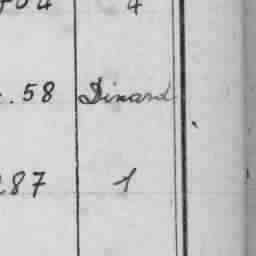 4
.58 Dinard
287 1